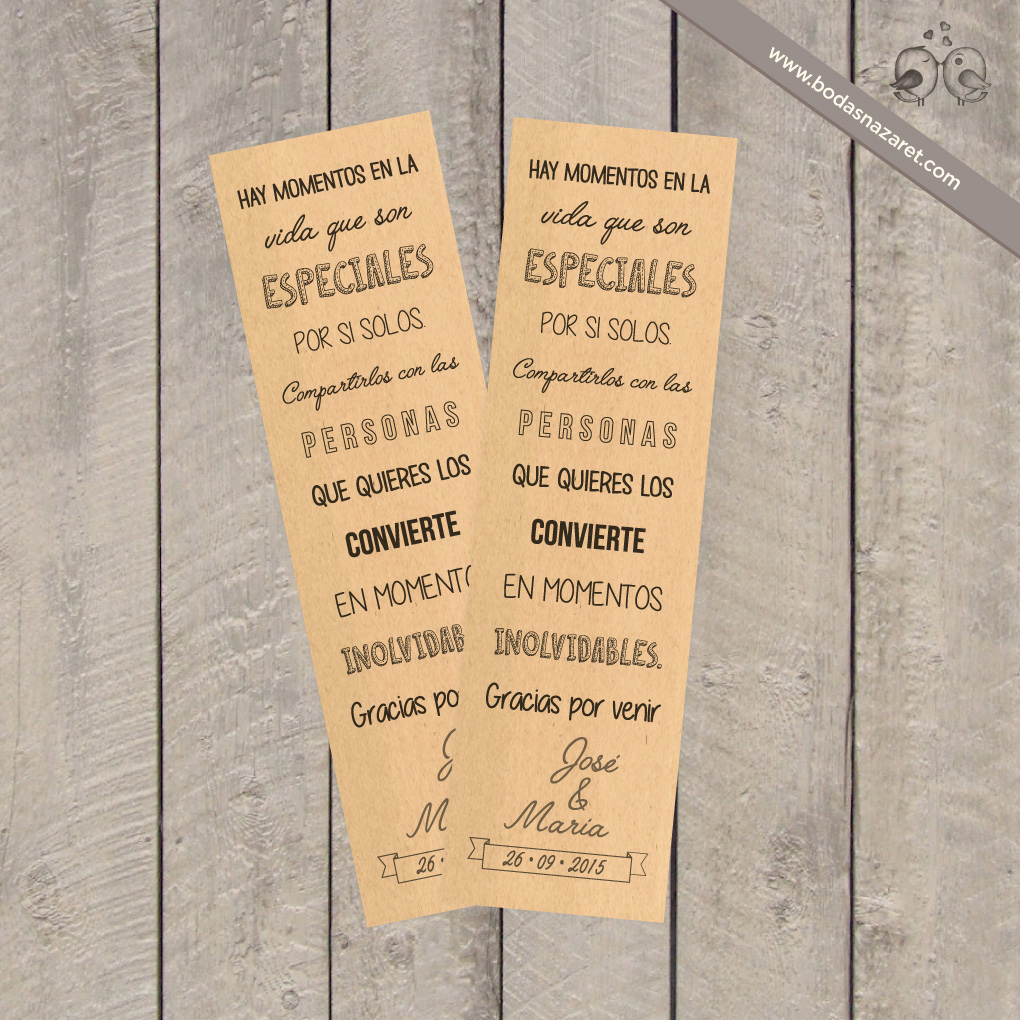 www.bodasnazaret.com
HAY MOMENTOS EN LA
vida que son
ESPECIALES
POR SI SOLOS.
Compartirlos con las
PERSONAS
QUE QUIERES LOS
CONVIERTE
EN MOMENTO
INOLVIDAB
Gracias po
J
M
26 •
HAY MOMENTOS EN LA
vida que son
ESPECIALES
POR SI SOLOS.
Compartirlos con las
PERSONAS
QUE QUIERES LOS
CONVIERTE
EN MOMENTOS
INOLVIDABLES.
Gracias por venir
José
&
Maria
26 • 09 • 2015